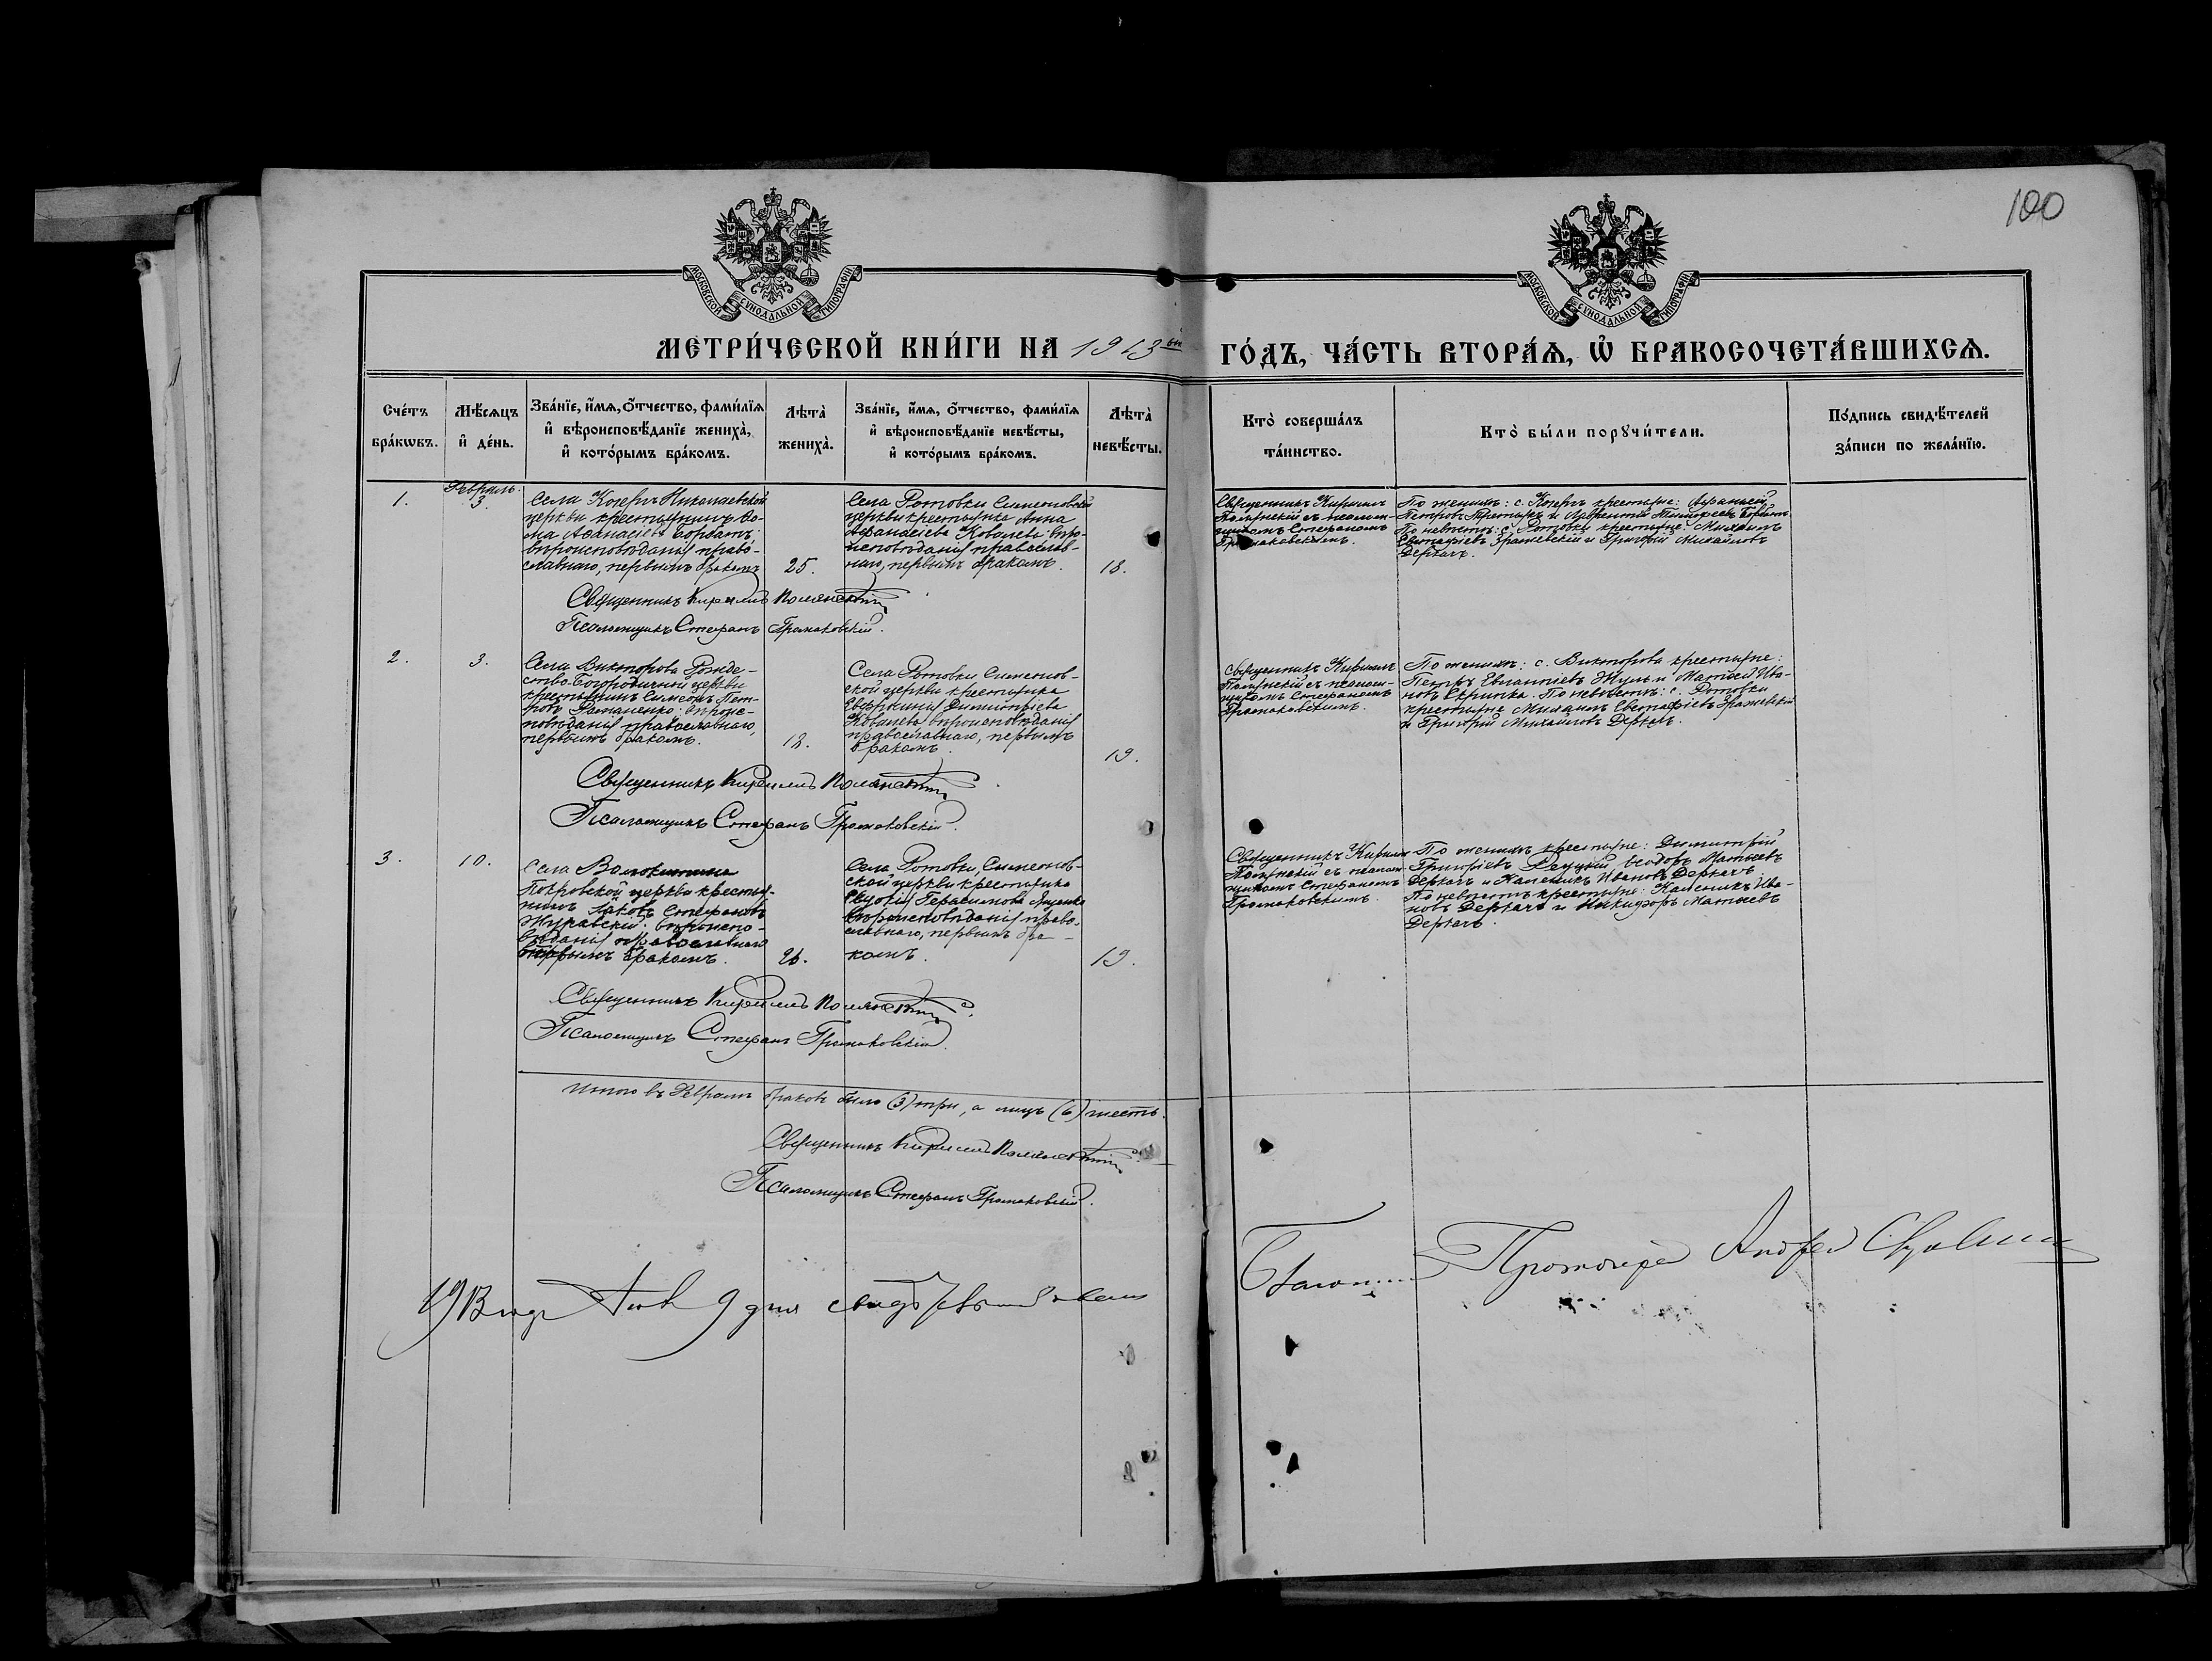 100
МОСКОВСКОЙ СѴНОДАЛЬНОЙ ТИПОГРАФІИ
МОСКОВСКОЙ СѴНОДАЛЬНОЙ ТИПОГРАФІИ
МЕТРИ́ЧЕСКОЙ КНИ́ГИ НА 1913 ый ГО́ДЪ, ЧА́СТЬ ВТОРА́Ѧ, Ѡ҆ БРАКОСОЧЕТА́ВШИХСѦ.
Сче́тъ
бра́кѡвъ.
Мѣ́сѧцъ
и҆ де́нь.
Зва́нїе, и҆́мѧ, ѻ҆́тчество, фами́лїѧ
и҆ вѣроисповѣ́данїе жениха̀,
и҆ кото́рымъ бра́комъ.
Лѣта̀
жениха̀.
Зва́нїе, и҆́мѧ, ѻ҆́тчество, фами́лїѧ
и҆ вѣроисповѣ́данїе невѣ́сты,
и҆ кото́рымъ бра́комъ.
Лѣта̀
невѣ́сты.
Кто̀ соверша́лъ
та́инство.
Кто̀ бы́ли порꙋчи́тели.
По́дпись свидѣ́телей
за́писи по жела́нїю.
1.
Февраль.
3.
Села Николаевской
церкви крестьянинъ Ѳо-
ма Аѳанасіевъ
вѣроисповѣданія право-
славнаго, первымъ бракомъ
25.
Села Ротовки Симеоновской
церкви крестьянка Анна
Аѳанасіева Ковалева вѣро-
исповѣданія православ-
наго, первымъ бракомъ.
18.
Священникъ Кириллъ
съ псалом-
щикомъ Стефаномъ
По женихѣ: с. крестьяне: Аѳанасій
Петровъ и Тимоѳеевъ
По невѣстѣ: с. Ротовки крестьяне: Михаилъ
Евстафіевъ и Григорій Михайловъ
Деркачъ.
Священникъ Кириллъ
Псаломщикъ Стефанъ
2.
3.
Села Викторова Рожде-
ство-Богородичной церкви
крестьянинъ Симеонъ Пет-
ровъ вѣроис-
повѣданія православнаго,
первымъ бракомъ.
18.
Села Ротовки Симеонов-
ской церкви крестьянка
Евфросинія Димитріева
Ковалева вѣроисповѣданія
православнаго, первымъ
бракомъ.
19.
Священникъ Кириллъ
съ псалом-
щикомъ Стефаномъ
По женихѣ: с. Викторова крестьяне:
Петръ Жукъ и Матѳей Ива-
новъ Скрипка. По невѣстѣ: с. Ротовки
крестьяне Михаилъ Евстафіевъ
и Григорій Михайловъ Деркачъ.
Священникъ Кириллъ
Псаломщикъ Стефанъ
3.
10.
Села Волокитина
Покровской церкви крестья-
нинъ Іаковъ Стефановъ
Журавскій вѣроиспо-
вѣданія православнаго
первымъ бракомъ.
26.
Села Ротовки, Симеонов-
ской церкви крестьянка
Евдокія Герасимова
вѣроисповѣданія право-
славнаго, первымъ бра-
комъ.
19.
Священникъ Кириллъ
съ псалом-
щикомъ Стефаномъ
По женихѣ крестьяне: Димитрій
Григоріевъ Ѳеодоръ Матѳеевъ
Деркачъ и Каленикъ Ивановъ Деркачъ.
По невѣстѣ крестьяне: Каленикъ Ива-
новъ Деркачъ и Никифоръ Матѳеевъ
Деркачъ.
Священникъ Кириллъ
Псаломщикъ Стефанъ
Итого въ Февралѣ браковъ было (3) три, а лицъ (6) шесть.
Священникъ Кириллъ
Псаломщикъ Стефанъ
1913 года 9 дня
Протоіерей Андрей